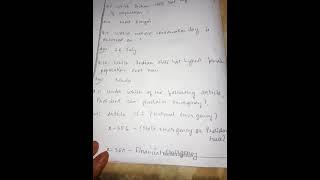 Q:- which Indian state
% population
Ans:- West Bengal
Q:- World nature conservation day is
observed on
Ans:- 28 July
Q:- which Indian state highest female
population
Ans:- Kerala
Q:- under which of the following article
President can proclaim emergency?
Ans:- article 352 (National emergency)
2-356 - (State emergency or President
Rule)
2-360 - Financial emergency